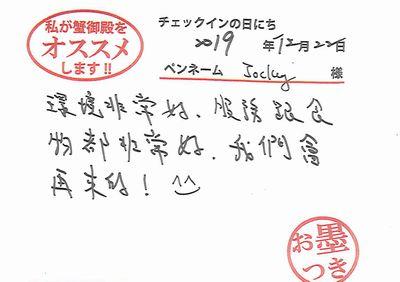 私が蟹御殿を
オススメ
します!!
チェックインの日にち
2019 年12月22日
ペンネーム Jocky 様
環境非常好、服務跟食
物都非常好、我們會
再來的! ^^
お墨
つき